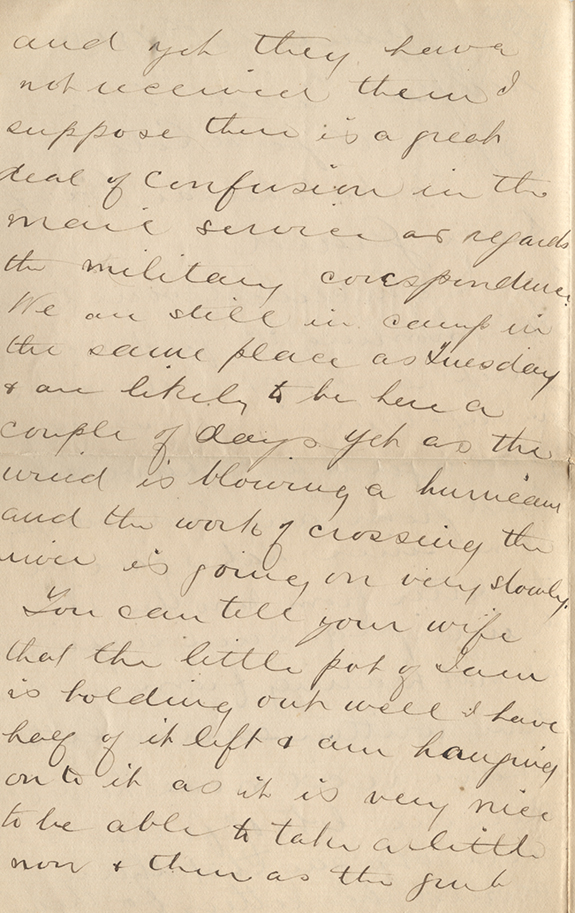 and yet they have
not received them I
suppose there is a great
deal of confusion in the
mail service as regards
the military corespondence.
We are still in camp in
the same place as Tuesday
& are likely to be here a
couple of days yet as the
wind is blowing a hurricane
and the work of crossing the
river is going on very slowly.
You can tell your wife
that the little pot of Jam
is holding out well I have
half of it left & am hanging
on to it as it is very nice
to be able to take a little
now & then as the grub